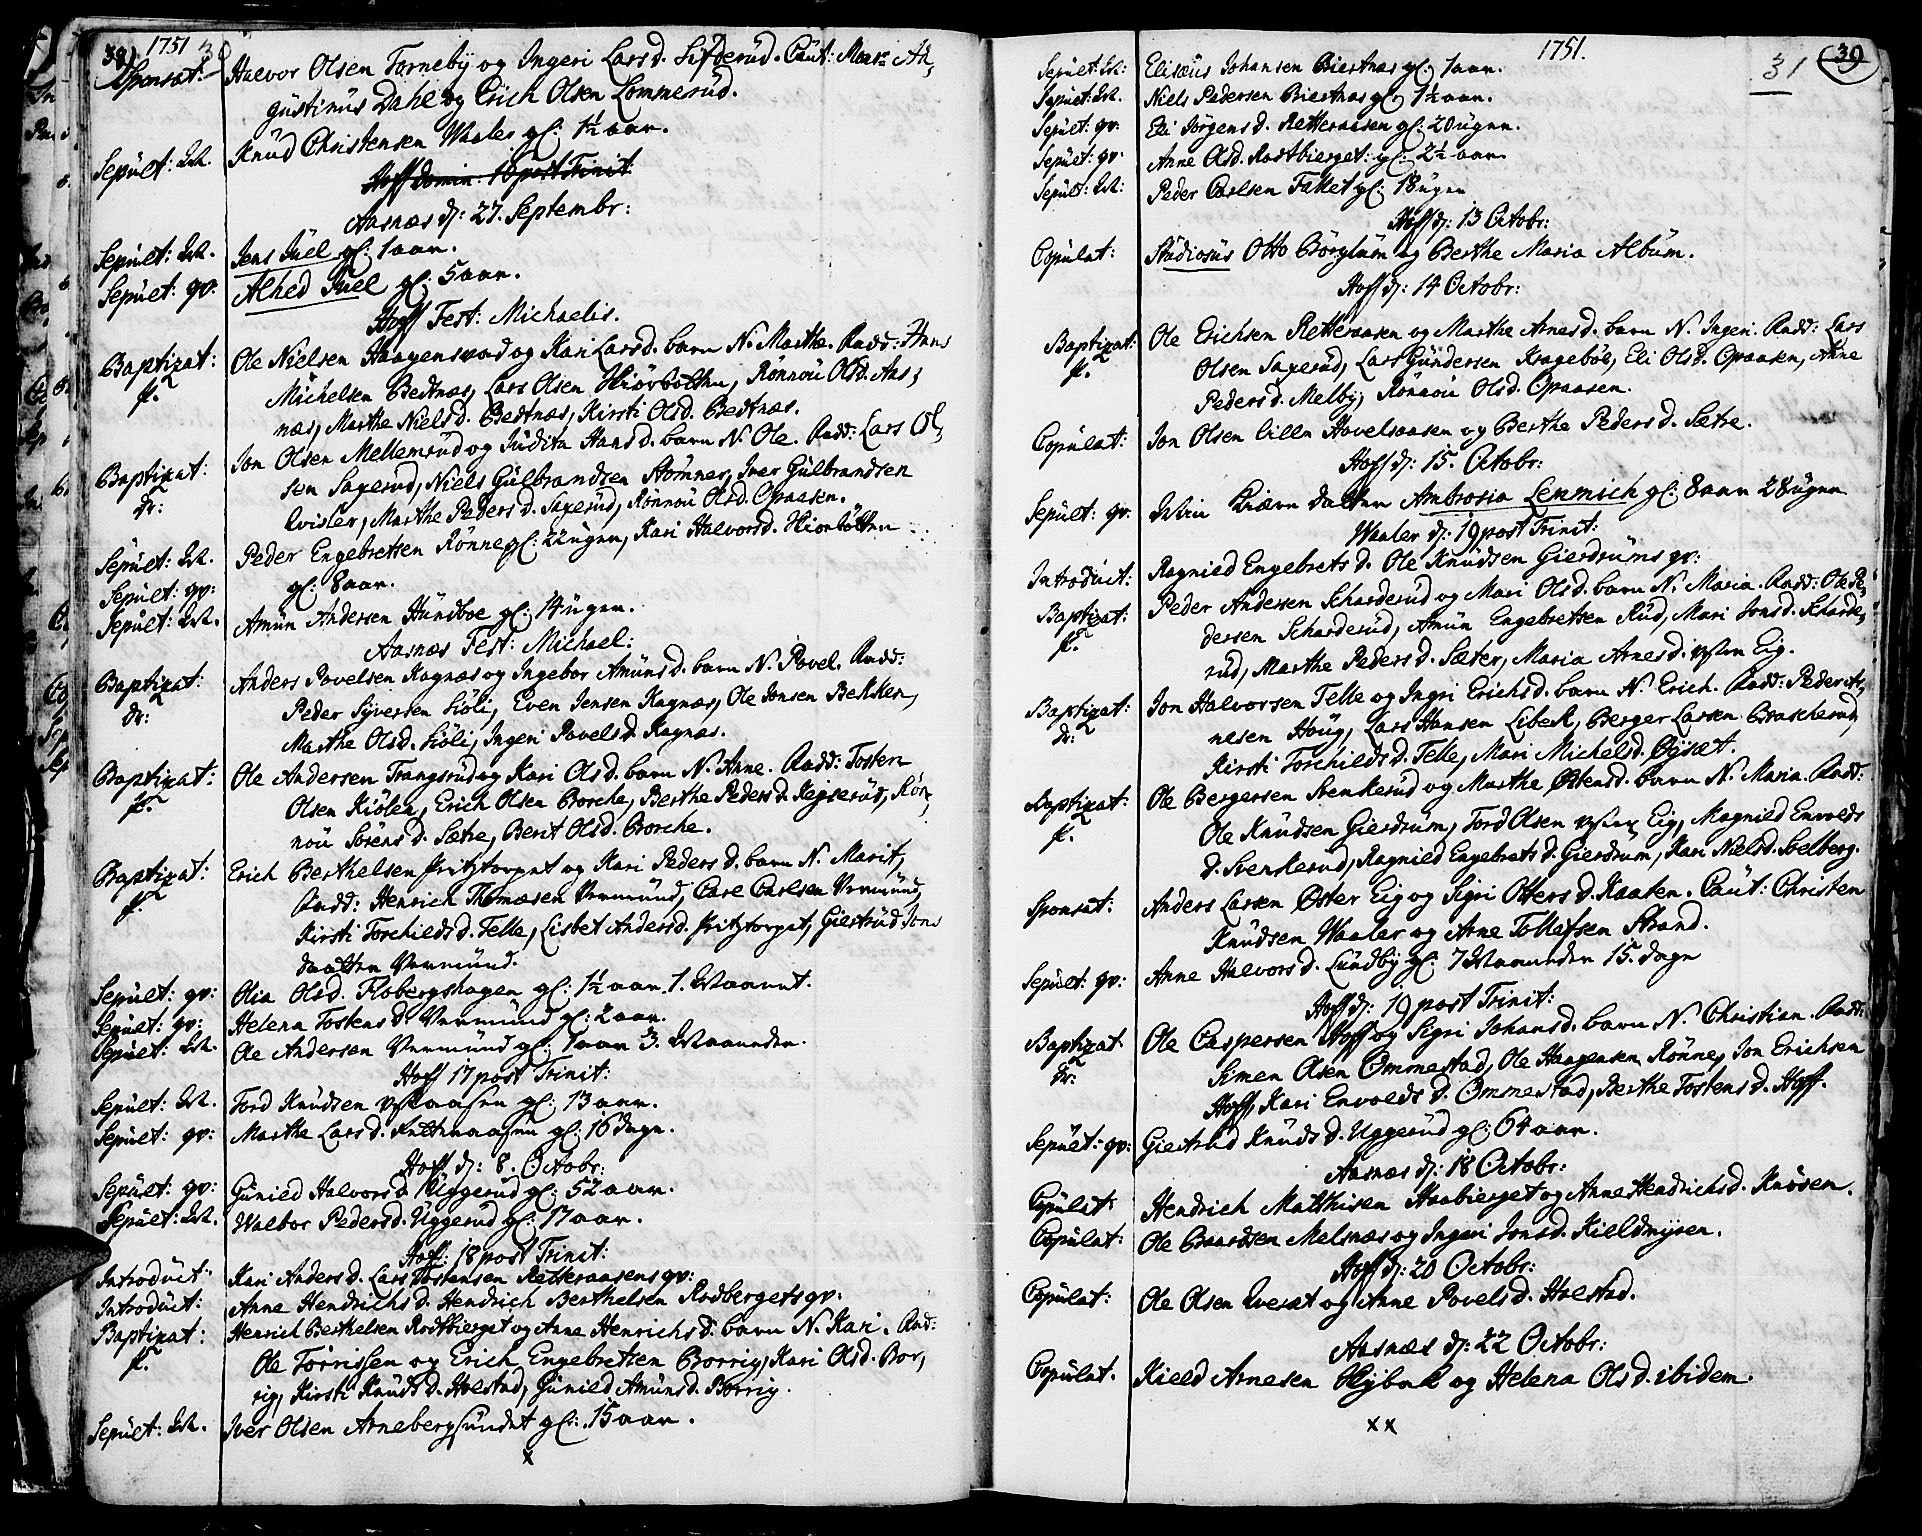 39) 1751 30
Sponsat: Halvor Olsen Torneby og Ingeri Larsd. Sifverud. Caut: Mons: Au,
gustinus Dahl og Erich Olsen Lommerud.
Sepult: M. Knud Christensen Waaler gl: 1½ aar.
Hoff Domin: 16 post Trinit:
Aasnæs d: 27. Septembr:
Sepult: M. Jens Juel gl: 1 aar.
Sepult: qv: Alhed Juel gl: 5 aar.
Hoff Fest: Michaelis.
Baptizat: f. Ole Nielsen Haagensrud og Kari Larsd. barn N. Marthe. Fadd: Hans
Michelsen Bedtnæs, Lars Olsen Skiørbolthen, Rønnou Olsd. Aas,
næs, Marthe Nielsd. Bedtnæs, Kirsti Olsd. Bedtnæs.
Baptizat: dr: Jon Olsen Mellemrud og Judita Hansd. barn N. Ole. Fadd: Lars Ol,
sen Saxerud, Niels Gulbrandsen Strømnes, Iver Gulbrandsen
Qvisler, Marthe Pedersd. Saxerud, Rønnou Olsd. Opaasen.
Sepult: M. Peder Engebretsen Rønne gl: 22 ugen, Kari Halvorsd. Skiørbolthen
Sepult: qv: gl: 8 aar.
Sepult: M. Amun Andersen Hundboe gl: 14 ugen.
Aasnæs Fest: Michael:
Baptizat: dr: Anders Povelsen Kagnæs og Ingebor Amunsd. barn N. Povel. Fadd:
Peder Syversen Kiöli, Even Jensen Kagnæs, Ole Jonsen Bekken,
Marthe Olsd. Kiöli, Ingeri Povelsd. Kagnæs.
Baptizat: f. Ole Andersen Trangsrud og Kari Olsd. barn N. Anne. Fadd: Tosten
Olsen Kiölen, Erich Olsen Borche, Berthe Pedersd. Keyserud, Røn,
nou Sörensd. Sætre, Berit Olsd. Borche.
Baptizat: f. Erich Berthelsen Fritztorpet og Kari Pedersd. barn N. Marit,
Fadd: Henrich Thomæsen Vermund, Carl Carlsen Vermund,
Kirsti Torchildsd. Telle, Lisbet Andersd. Fritztorpet, Giertrud Jons
daatter Vermund.
Sepult: qv: Olia Olsd. Flobergshagen gl: 1½ aar 1. Maanet.
Sepult: qv: Helena Tostensd. Vermund gl: 2 aar.
Sepult: M. Ole Andersen Vermund gl: 1 aar 3. Maaneder.
Hoff 17 post Trinit:
Sepult: M. Tord Knudsen gl: 13 aar.
Sepult: qv: Marthe Larsd. gl: 16 dage.
Hoff d: 8. Octobr:
Sepult: qv: Gunild Halvorsd. Uggerud gl: 52 aar.
Sepult: M. Walbor Pedersd. Uggerud gl: 17 aar.
Hoff: 18 post Trinit:
Introduct: Kari Andersd. Lars Tostensen Retteraasens qv:
Introduct: Anne Hendrichsd. Hendrich Berthelsen Rodbergets qv:
Baptizat: f. Henrich Berthelsen Rodtbierget og Anne Henrichsd. barn N. Kari. Fad:
Ole Torrissen og Erich Engebretsen Borrig, Kari Olsd. Bor,
rig, Kirsti Knudsd. Holstad, Gunild Amunsd. Borrig.
Sepult: M. Iver Olsen Arnebergsundet gl: 15 aar.
x
1751. 31 39
Sepult: M: Elisæus Johansen Biertnæs gl: 1 aar.
Sepult: M. Niels Pedersen Biertnæs gl: 1½ aar.
Sepult: qv: Eli Jörgensd. Retteraasen gl: 20 ugen.
Sepult: qv: Anne Olsd. Rodtbierget: gl: 2½ aar.
Sepult: M: Peder Carlsen Fallet gl: 18 ugen
Hoff d: 13 Octobr:
Copulat: Studiosus Otto Borglum og Berthe Maria Album.
Hoff d: 14 Octobr:
Baptizat: f. Ole Erichsen Retteraasen og Marthe Arnesd. barn N. Ingeri. Fadd: Lars
Olsen Saxerud, Lars Gundersen Kragebøl, Eli Olsd. Opaasen, Anne
Pedersd. Melby, Rønnou Olsd. Opaasen.
Copulat: Jon Olsen lille Hovelsaasen og Berthe Pedersd. Sætre.
Hoff d: 15. Octobr:
Sepult: qv: Min Kiære datter Ambrosia Lemmich gl: 8 aar 28 ugen
Waaler d: 19 post Trinit:
Introduct: Ragnild Engebretsd. Ole Knudsen Gierdrums qv:
Baptizat: f. Peder Andersen Scharderud og Mari Olsd. barn N. Maria. Fadd: Ole Pe,
dersen Scharderud, Amun Engebretsen Rud, Mari Jonsd. Scharde,
rud, Marthe Pedersd. Sæter, Maria Arnesd. Øster Eig.
Baptizat: dr: Jon Halvorsen Telle og Ingri Erichsd. barn N. Erich. Fadd: Peder Ar,
nesen Houg, Lars Hansen Libech, Berger Larsen Brascherud,
Kirsti Torchildsd. Telle, Mari Michelsd. Øyset.
Baptizat: f. Ole Bergersen Svenkerud og Marthe Østensd. barn N. Maria. Fadd:
Ole Knudsen Gierdrum, Tord Olsen Øster Eig, Magnild Envolds
d. Svenkerud, Ragnild Engebretsd. Gierdrum, Kari Nielsd. Solberg.
Sponsat: Anders Larsen Øster Eig og Sigri Ottersd. Kaaten. Caut: Christen
Knudsen Waaler og Arne Tollefsen Strand.
Sepult: qv: Anne Halvorsd. Lundby gl: 7 Maaneder 15. dage
Hoff d: 19 post Trinit:
Baptizat dr: Ole Caspersen Hoff og Sigri Johansd. barn N. Christian. Fadd:
Simen Olsen Ommestad, Ole Haagensen Rønne, Jon Erichsen
Hoff, Kari Envoldsd. Ommestad, Berthe Tostensd. Hoff.
Sepult: qv: Giertrud Knudsd. Uggerud gl: 64 aar.
Aasnæs d: 18 Octobr:
Copulat: Hendrich Matthisen Haabierget og Anne Hendrichsd. Knosen.
Copulat: Ole Baardsen Melsnæs og Ingeri Jonsd. Kieldmyren.
Hoff d: 20 Octobr:
Copulat: Ole Olsen Qveset og Anne Povelsd. Holstad.
Aasnæs d: 22 Octobr:
Copulat. Kield Arnesen Nybak og Helena Olsd. ibidem.
xx